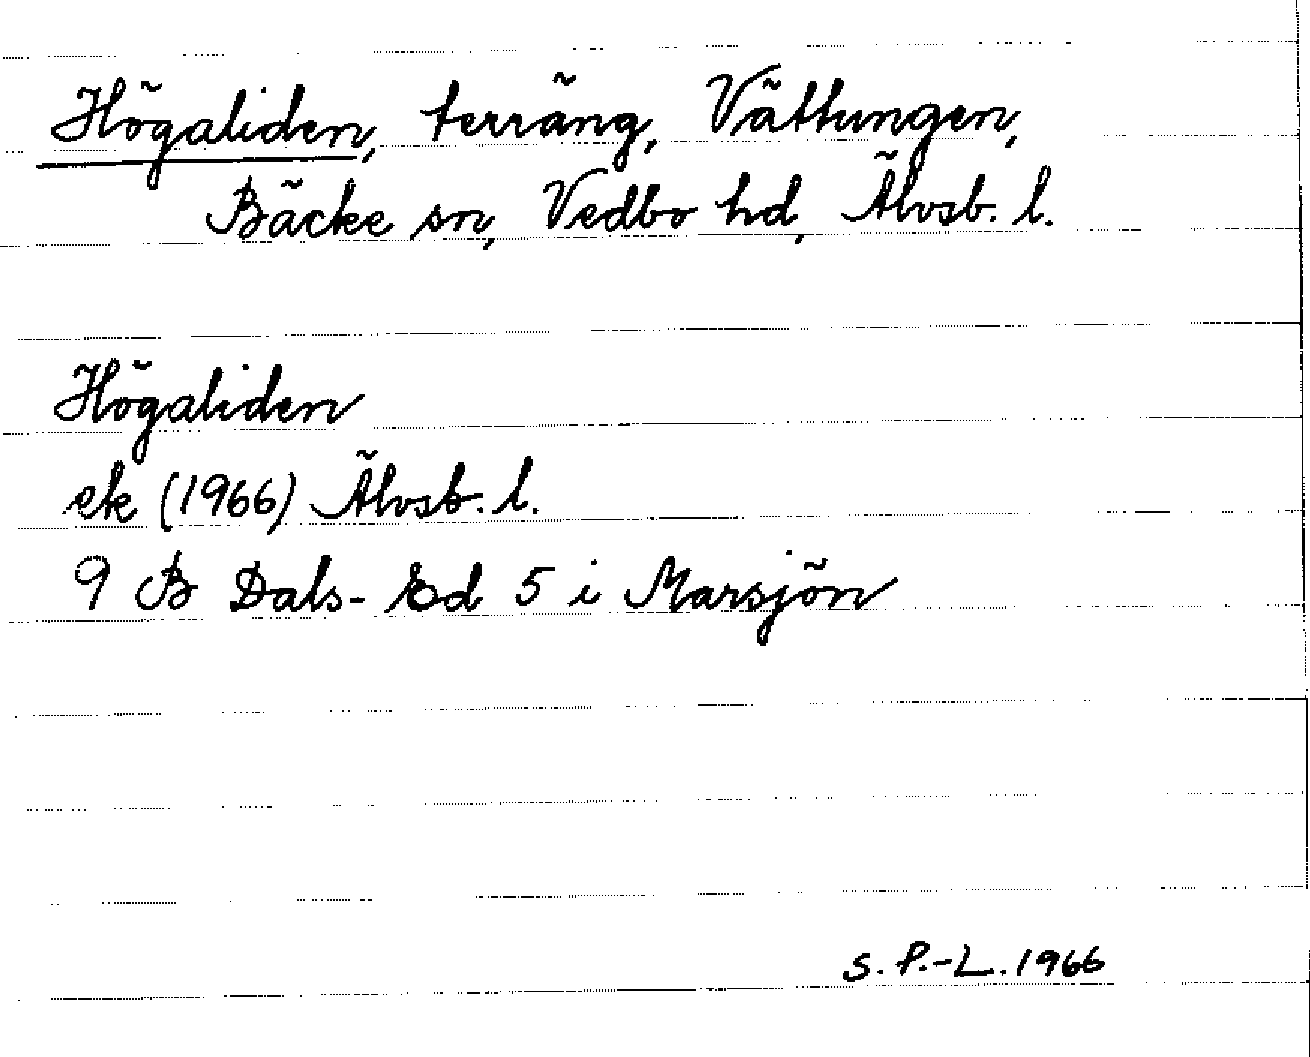 Högaliden, terräng, Vättungen,
Bäcke sn, Vedbo hd, Älvsb. l.
Högaliden
ek (1966) Älvsb. l.
9 B Dals-Ed 5 i Marsjön
S. P.-L. 1966